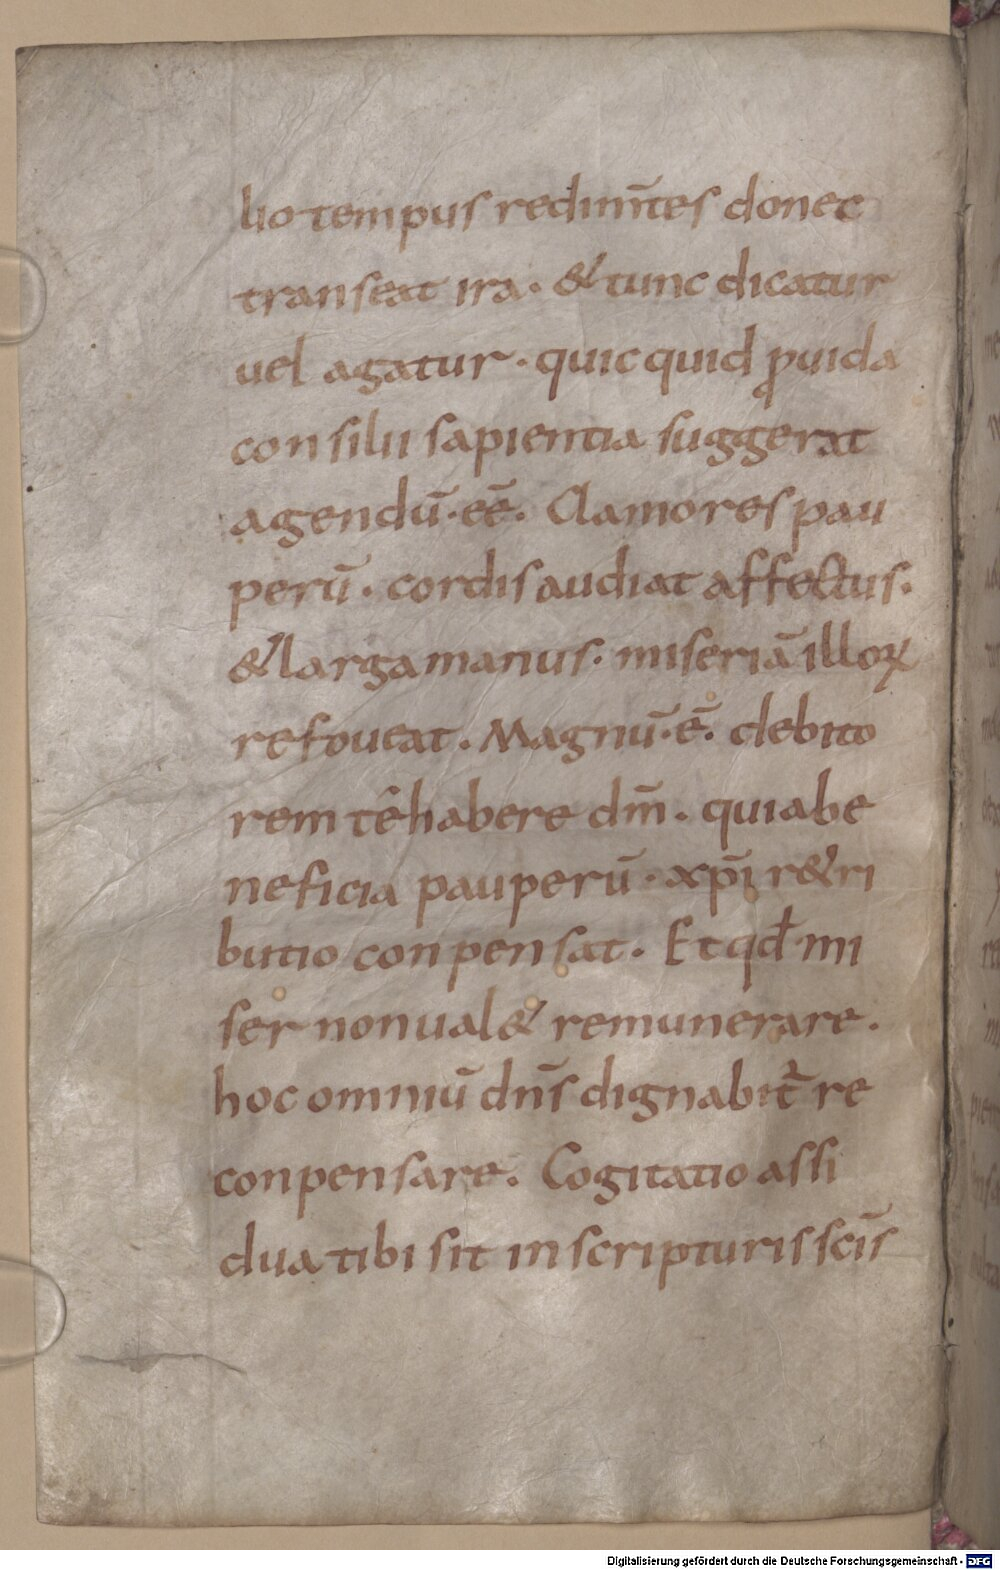 lio tempus redim̄tes donec
transeat ira. & tunc dicatur
uel agatur. quicquid ꝓuida
consilii sapientia suggerat
agendū. eē. Clamores pau
perū. cordis audiat affectus.
& larga manus. miseriā illoꝝ
refoueat. Magnū. ē. debito
rem tē habere dm̄. quia be
neficia pauperū. xp̄i r&ri
butio conpensat. Et qđ mi
ser non ual& remunerare.
hoc omniū dn̄s dignabit᷑ re
conpensare. Cogitatio assi
dua tibi sit in scripturis scīs
Digitalisierung gefördert durch die Deutsche Forschungsgemeinschaft - DFG